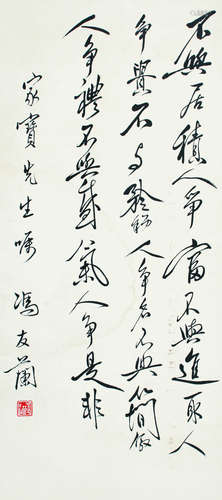 不與居積人争富不與進取人
争貴不与矜飾人争名不與簡傲
人争禮不與盛氣人争是非
家寶先生嘱 馮友蘭